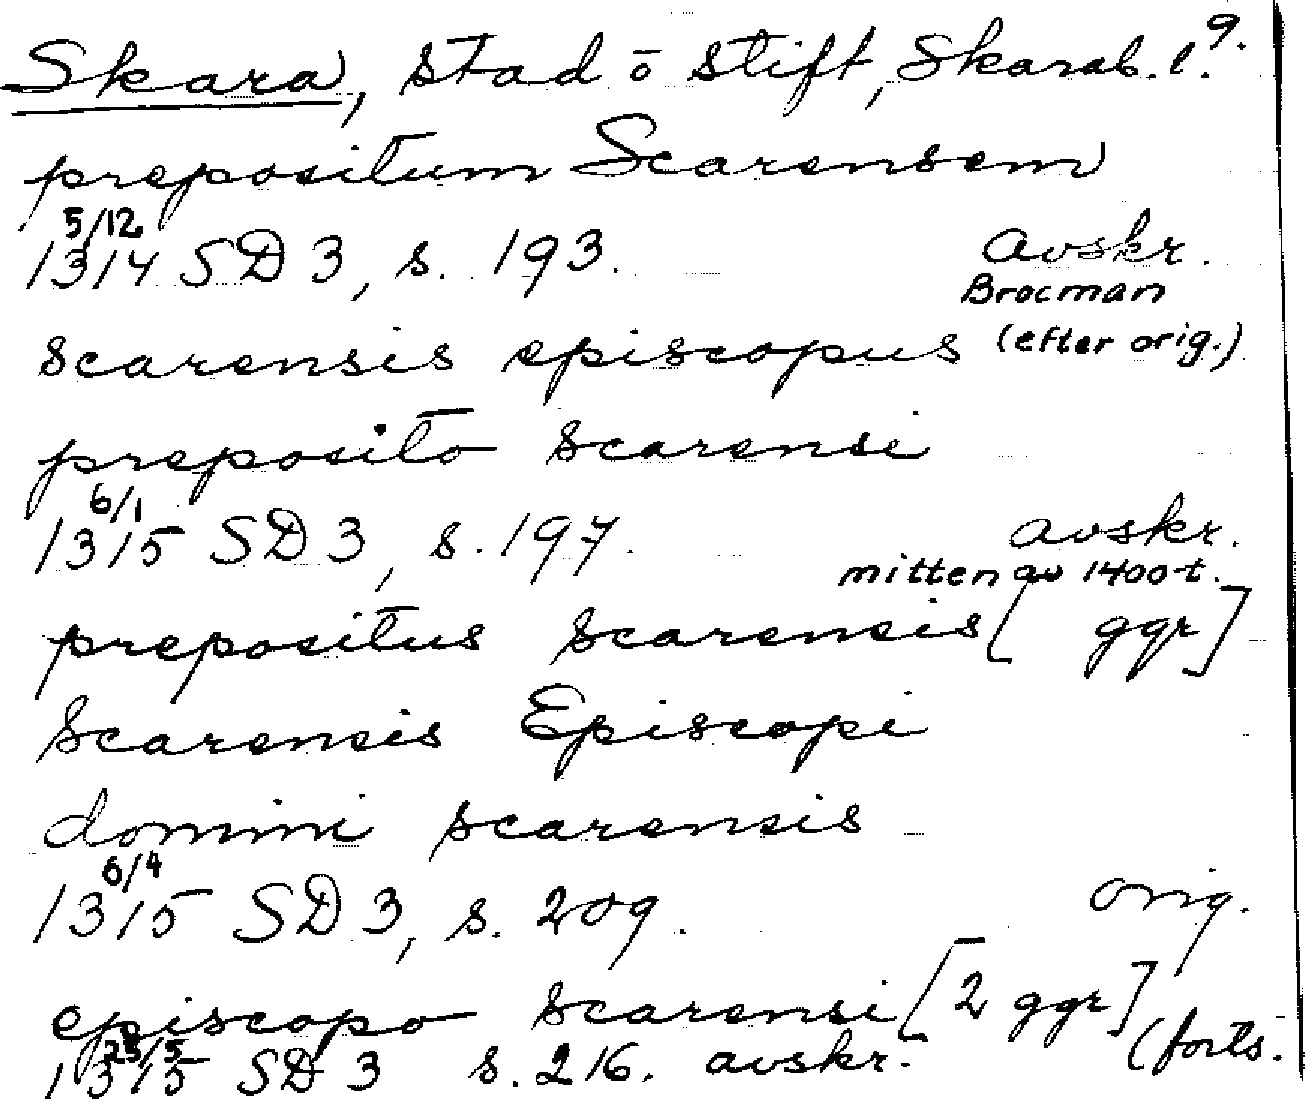 Skara, stad ō stift, Skarab. l. 9.
prepositum Scarensem
5/12
1314 SD 3, s. 193. avskr.
Brocman
scarensis episcopus (efter orig.)
preposito scarensi
6/1
1315 SD 3, s. 197. avskr.
mitten av 1400-t.
prepositus scarensis [ ggr]
Scarensis Episcopi
domini scarensis
6/4
1315 SD 3, s. 209. orig.
episcopo scarensi [2 ggr]
23/5 (forts.
1315 SD 3 s. 216. avskr.